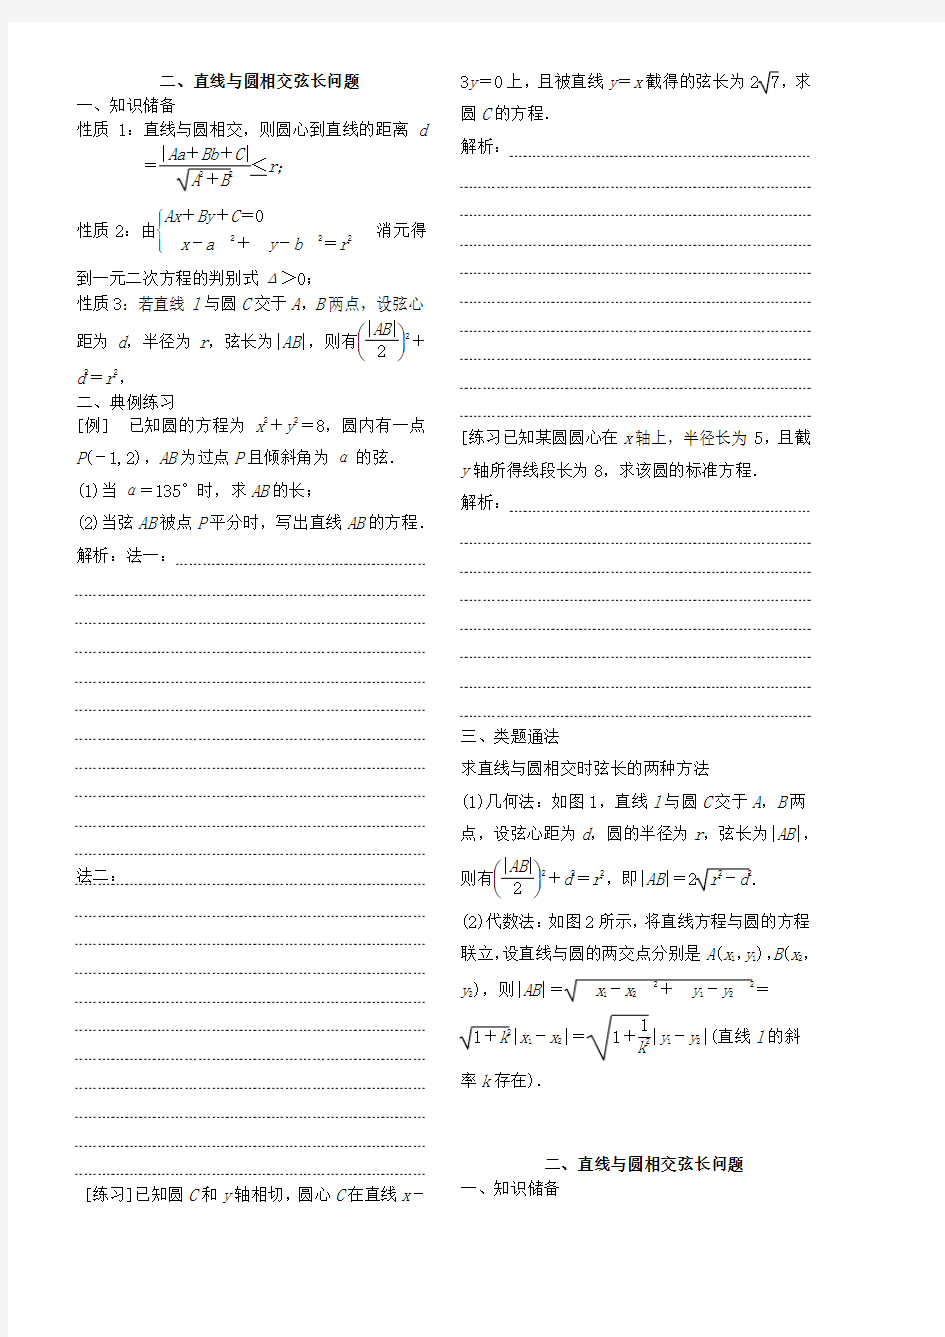 二、直线与圆相交弦长问题
一、知识储备
性质 1：直线与圆相交，则圆心到直线的距离 d
＝|Aa＋Bb＋C|/√(A²＋B²)≤r；
性质 2：由{Ax＋By＋C＝0
x－a ²＋ y－b ²＝r² 消元得
到一元二次方程的判别式 Δ＞0；
性质 3：若直线 l 与圆 C 交于 A，B 两点，设弦心
距为 d，半径为 r，弦长为|AB|，则有(|AB|/2)²＋
d²＝r²，
二、典例练习
[例] 已知圆的方程为 x²＋y²＝8，圆内有一点
P(－1,2)，AB 为过点 P 且倾斜角为 α 的弦．
(1)当 α＝135°时，求 AB 的长；
(2)当弦 AB 被点 P 平分时，写出直线 AB 的方程．
解析：法一：
法二：
[练习]已知圆 C 和 y 轴相切，圆心 C 在直线 x－
3y＝0 上，且被直线 y＝x 截得的弦长为 2√7，求
圆 C 的方程．
解析：
[练习已知某圆圆心在 x 轴上，半径长为 5，且截
y 轴所得线段长为 8，求该圆的标准方程．
解析：
三、类题通法
求直线与圆相交时弦长的两种方法
(1)几何法：如图 1，直线 l 与圆 C 交于 A，B 两
点，设弦心距为 d，圆的半径为 r，弦长为|AB|，
则有(|AB|/2)²＋d²＝r²，即|AB|＝2√(r²－d²)．
(2)代数法：如图 2 所示，将直线方程与圆的方程
联立，设直线与圆的两交点分别是 A(x₁，y₁)，B(x₂，
y₂)，则|AB|＝√( x₁－x₂ ²＋ y₁－y₂ ²)＝
√(1＋k²)|x₁－x₂|＝√(1＋1/k²)|y₁－y₂|(直线 l 的斜
率 k 存在)．
二、直线与圆相交弦长问题
一、知识储备